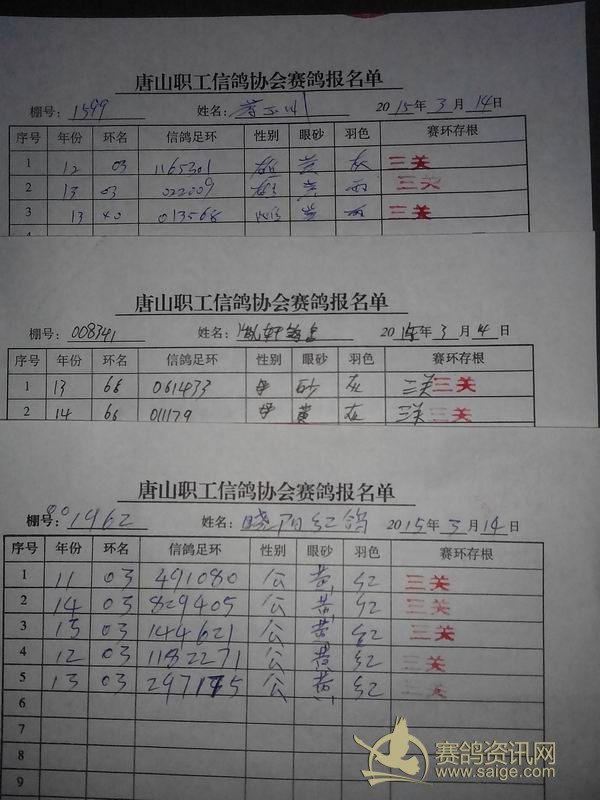 唐山职工信鸽协会赛鸽报名单
棚号: 1599 姓名: 2015年3月14日
序号 年份 环名 信鸽足环 性别 眼砂 羽色 赛环存根
1 12 03 1165301 雄 黄 灰 三关
2 13 03 022009 雄 黄 雨 三关
3 13 40 013568 雄 黄 雨 三关
唐山职工信鸽协会赛鸽报名单
棚号: 008341 姓名: 2015年3月14日
序号 年份 环名 信鸽足环 性别 眼砂 羽色 赛环存根
1 13 66 061433 砂 灰 三关 三关
2 14 66 011179 黄 灰 三关 三关
唐山职工信鸽协会赛鸽报名单
棚号: 801962 姓名: 晓阳红鸽 2015年3月14日
序号 年份 环名 信鸽足环 性别 眼砂 羽色 赛环存根
1 11 03 491080 公 黄 红 三关
2 14 03 829405 公 黄 红 三关
3 13 03 144621 公 黄 红 三关
4 12 03 1182271 公 黄 红 三关
5 13 03 公 黄 红 三关
6
7
8
9
赛鸽资讯网
www.saige.com